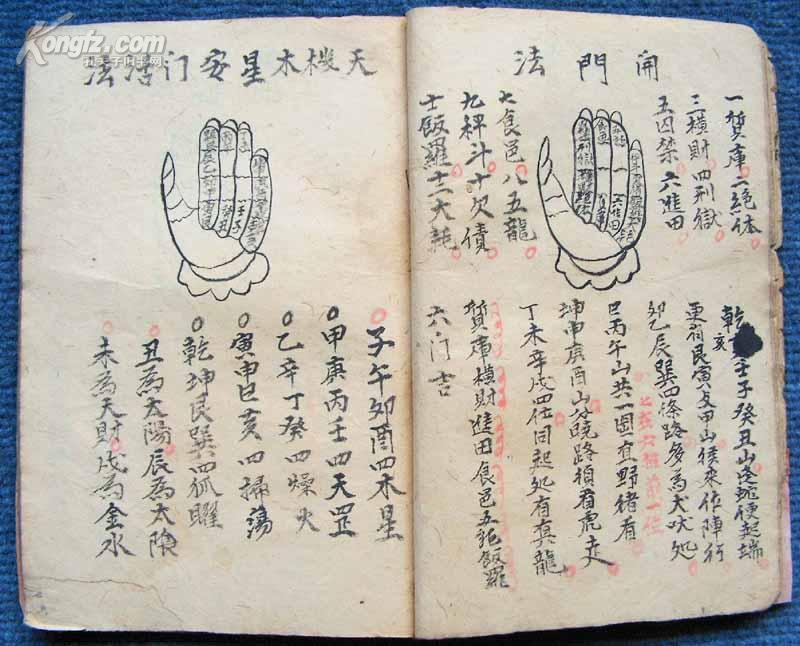 開門法
一質庫二絕体
三橫財四刑獄
五囚禁六進田
七食邑八五龍
九秤斗十欠債
士飯羅十二大耗
乾亥壬子癸丑山逢蛇便起端
更有艮寅及甲山猴來作陣行
卯乙辰巽四條路多為犬吠処
巳丙午山共一圖宜野猪有
坤申庚酉山分曉路須看虎走
丁未辛戌四位同起処有真龍
質庫橫財進田食邑五龍飯羅
六门吉
天機木星安门活法
子午卯酉四木星
甲庚丙壬四天罡
乙辛丁癸四燥火
寅申巳亥四掃蕩
乾坤艮巽四孤曜
丑為太陽辰為太陰
未為天財戌為金水
Kongfz.com
孔夫子旧书网